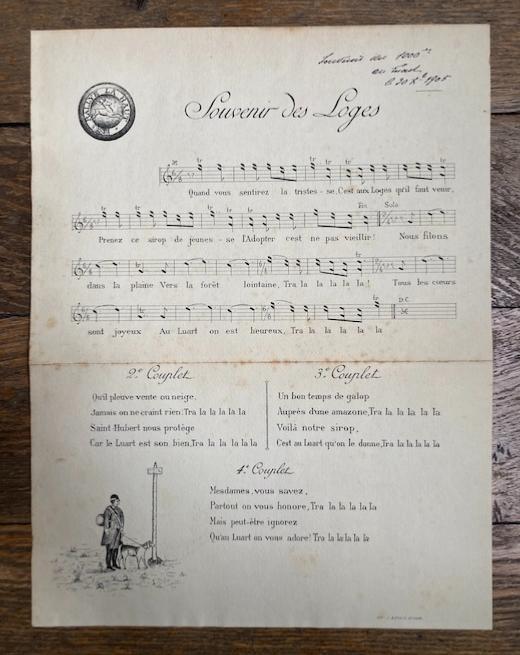 Souvenir du 1000me
au Luart
le 20 Xbre 1905
Souvenir des Loges
Quand vous sentirez la tristes - se, C'est aux Loges qu'il faut venir,
Fin Solo
Prenez ce sirop de jeunes - se l'Adopter c'est ne pas vieillir! Nous filons
dans la plaine Vers la forêt lointaine, Tra la la la la la! Tous les cœurs
D.C.
sont joyeux Au Luart on est heureux, Tra la la la la la
2e Couplet
Qu'il pleuve vente ou neige,
Jamais on ne craint rien; Tra la la la la la
Saint-Hubert nous protège
Car le Luart est son bien, Tra la la la la la
3e Couplet
Un bon temps de galop
Auprès d'une amazone, Tra la la la la la
Voilà notre sirop,
C'est au Luart qu'on le donne, Tra la la la la la
4e Couplet
Mesdames, vous savez,
Partout on vous honore, Tra la la la la la
Mais peut-être ignorez
Qu'au Luart on vous adore! Tra la la la la la